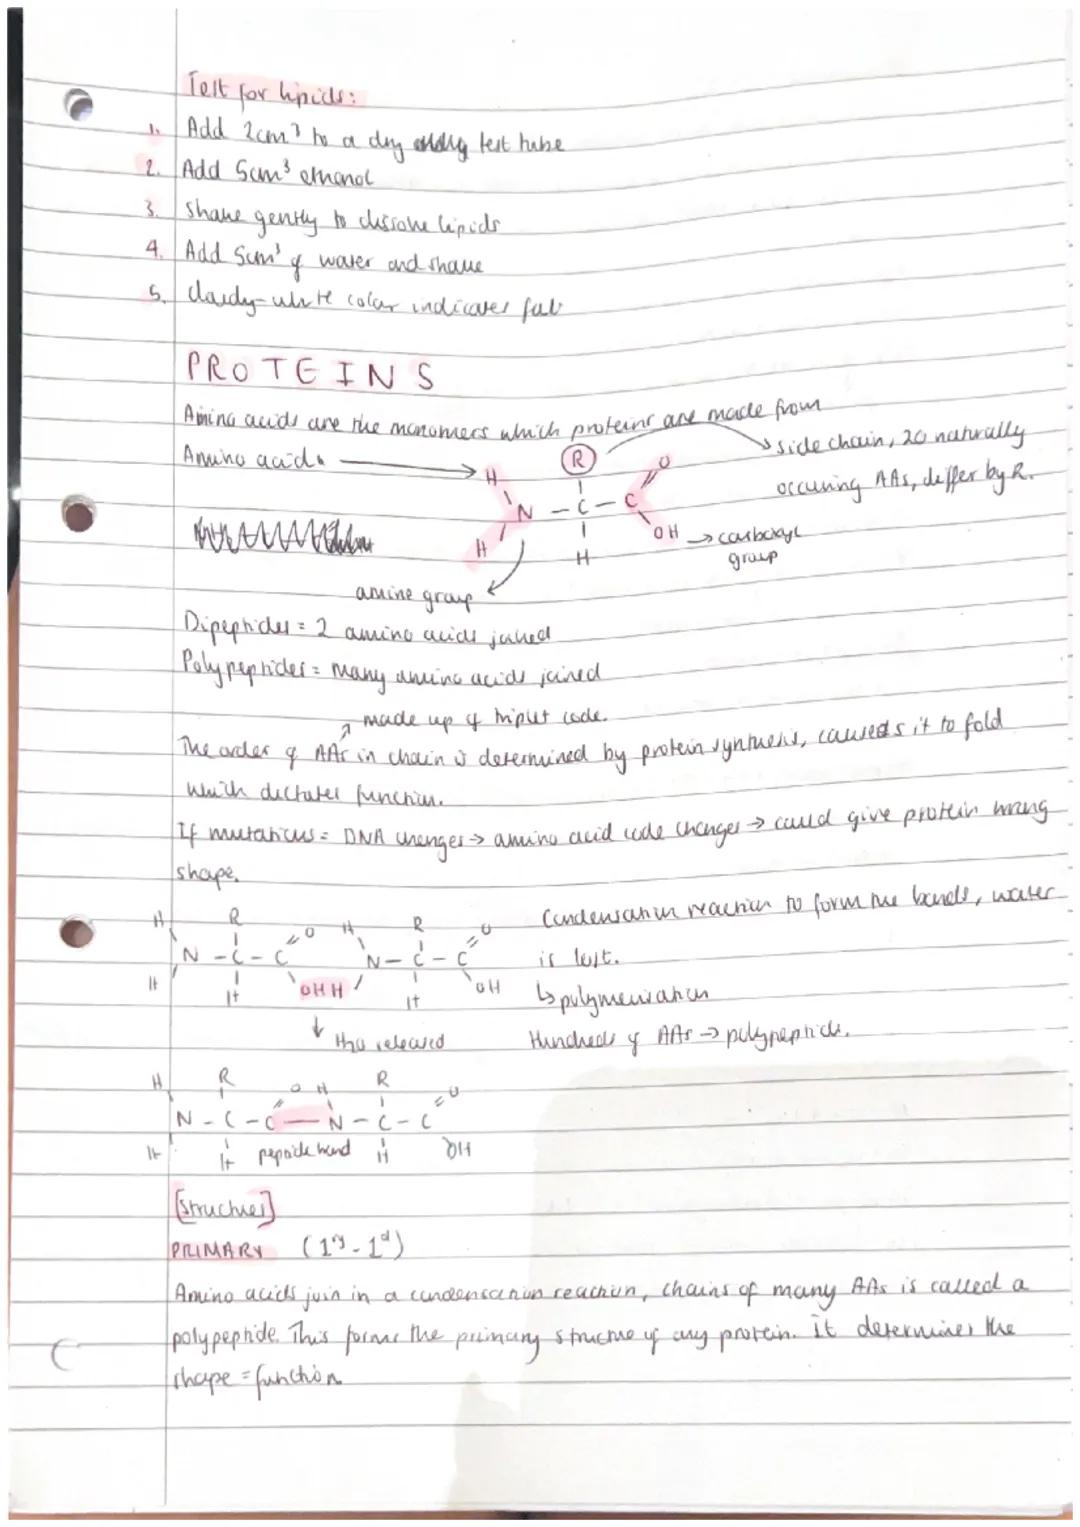 Test for lipids:
1. Add 2cm³ to a dry test tube
2. Add 5cm³ ethanol
3. Shake gently to dissolve lipids
4. Add 5cm³ of water and shake
5. Cloudy-white colar indicates fat
PROTEINS
Amino acids are the monomers which proteins are made from
Amino acids
side chain, 20 naturally
occuring AAs, differ by R.
R
H O
N - C - C
H H OH → carboxyl
group
amine group
Dipeptides = 2 amino acids joined
Polypeptides = many amino acids joined
made up of triplet code.
The order of AAs in chain is determined by protein synthesis, causes it to fold
which dictates function.
If mutations = DNA changes → amino acid code changes → could give protein wrong
shape.
Condensation reaction to form the bonds, water
is lost.
↳ polymerisation
Hundreds of AAs → polypeptide.
H R O H R O
N - C - C N - C - C
H H OH H H OH
↓ H₂O released
H R O H R O
N - C - C — N - C - C
H H peptide bond H OH
[Structures]
PRIMARY (1ry - 1d)
Amino acids join in a condensation reaction, chains of many AAs is called a
polypeptide. This forms the primary structure of any protein. It determines the
shape = function